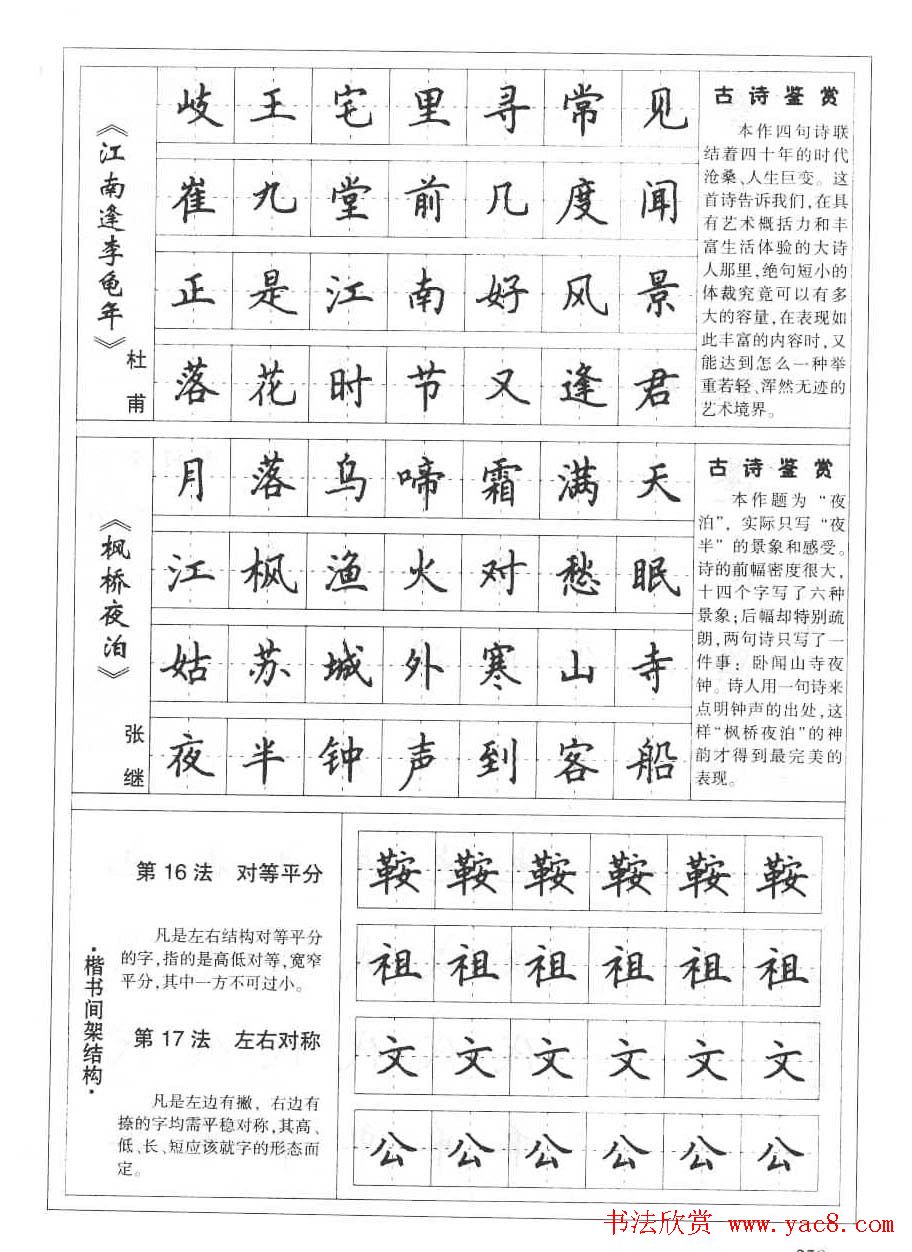 《江南逢李龟年》
杜甫
岐王宅里寻常见
崔九堂前几度闻
正是江南好风景
落花时节又逢君
古诗鉴赏
本作四句诗联
结着四十年的时代
沧桑、人生巨变。这
首诗告诉我们,在具
有艺术概括力和丰
富生活体验的大诗
人那里,绝句短小的
体裁究竟可以有多
大的容量,在表现如
此丰富的内容时,又
能达到怎么一种举
重若轻、浑然无迹的
艺术境界。
《枫桥夜泊》
张继
月落乌啼霜满天
江枫渔火对愁眠
姑苏城外寒山寺
夜半钟声到客船
古诗鉴赏
本作题为“夜
泊”,实际只写“夜
半”的景象和感受。
诗的前幅密度很大,
十四个字写了六种
景象;后幅却特别疏
朗,两句诗只写了一
件事:卧闻山寺夜
钟。诗人用一句诗来
点明钟声的出处,这
样“枫桥夜泊”的神
韵才得到最完美的
表现。
·楷书间架结构·
第16法 对等平分
凡是左右结构对等平分
的字,指的是高低对等,宽窄
平分,其中一方不可过小。
第17法 左右对称
凡是左边有撇,右边有
捺的字均需平稳对称,其高、
低、长、短应该就字的形态而
定。
鞍鞍鞍鞍鞍鞍
祖祖祖祖祖祖
文文文文文文
公公公公公公
书法欣赏 www.yac8.com